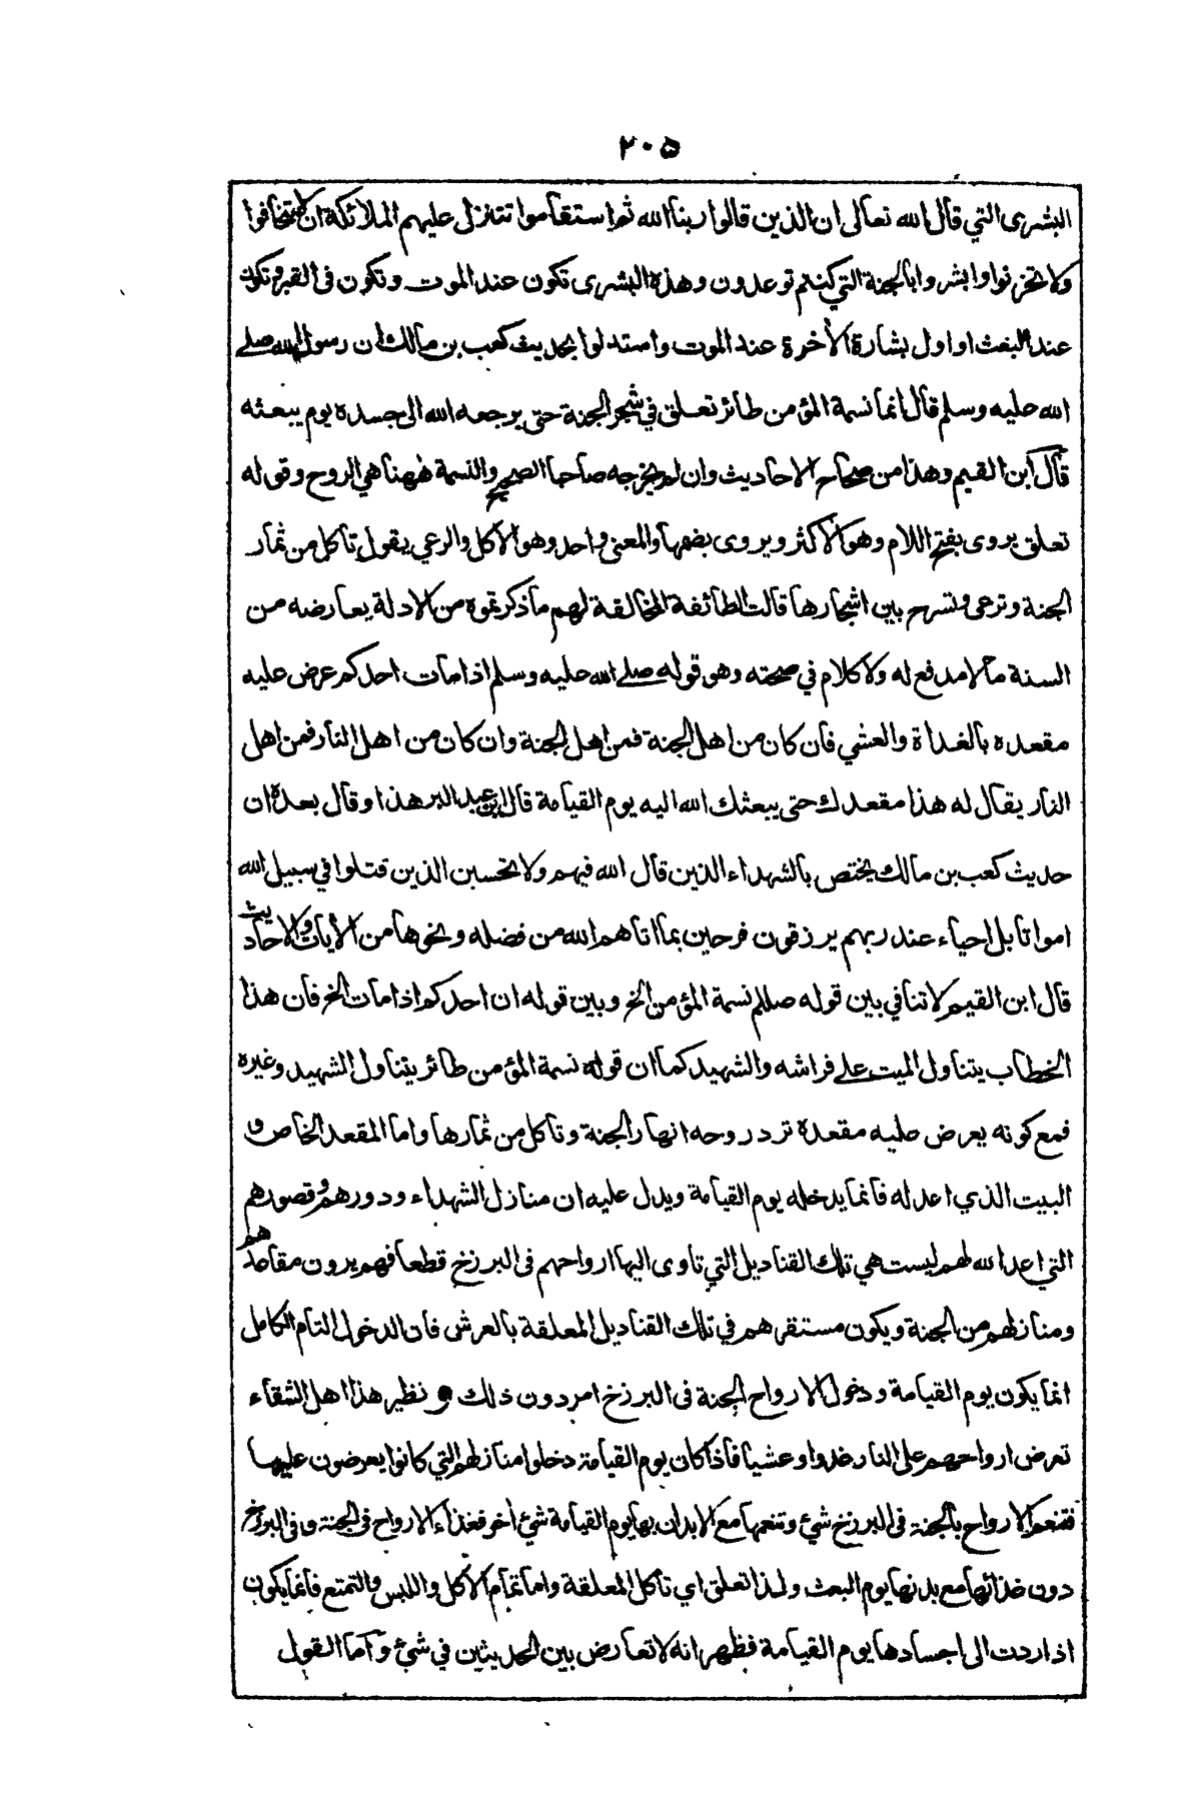 ٢٠٥
البشرى التي قال الله تعالى ان الذين قالوا ربنا الله ثم استقاموا تتنزل عليهم الملائكة ان لا تخافوا
ولا تحزنوا وابشروا بالجنة التي كنتم توعدون وهذه البشرى تكون عند الموت وتكون في القبر وتكون
عند البعث او اول بشارة الأخرة عند الموت واستدلوا بحديث كعب بن مالك ان رسول الله صلے
الله عليه وسلم قال انما نسمة المؤمن طائر تعلق في شجر الجنة حتى يرجعه الله الى جسده يوم يبعثه
قال ابن القيم وهذا من صحاح الاحاديث وان لم يخرجه صاحبا الصحيح والنسمة ههنا هي الروح وقوله
تعلق يروى بفتح اللام وهو الأكثر ويروى بضمها والمعنى واحد وهو الأكل والرعي يقول تأكل من ثمار
الجنة وترعى وتسرح بين اشجارها قالت الطائفة المخالفة لهم ما ذكرتموه من الادلة يعارضه من
السنة ما لا مدفع له ولا كلام في صحته وهو قوله صلے الله عليه وسلم اذا مات احدكم عرض عليه
مقعده بالغداة والعشي فان كان من اهل الجنة فمن اهل الجنة وان كان من اهل النار فمن اهل
النار يقال له هذا مقعدك حتى يبعثك الله اليه يوم القيامة قال ابن عبد البر هذا وقال بعده ان
حديث كعب بن مالك يختص بالشهداء الذين قال الله فيهم ولا تحسبن الذين قتلوا في سبيل الله
امواتا بل احياء عند ربهم يرزقون فرحين بما اتاهم الله من فضله ونحوها من الأيات والاحاديث
قال ابن القيم لا تنافي بين قوله صللم نسمة المؤمن الخ وبين قوله ان احدكم اذا مات الخ فان هذا
الخطاب يتناول الميت علے فراشه والشهيد كما ان قوله نسمة المؤمن طائر يتناول الشهيد وغيره
فمع كونه يعرض عليه مقعده ترد روحه انهار الجنة وتاكل من ثمارها واما المقعد الخاص و
البيت الذي اعد له فانما يدخله يوم القيامة ويدل عليه ان منازل الشهداء ودورهم وقصورهم
التي اعد الله لهم ليست هي تلك القناديل التي تاوى اليها ارواحهم في البرزخ قطعا فهم يرون مقاعدهم
ومنازلهم من الجنة ويكون مستقرهم في تلك القناديل المعلقة بالعرش فان الدخول التام الكامل
انما يكون يوم القيامة ودخول الارواح الجنة في البرزخ امر دون ذلك ونظير هذا اهل الشقاء
تعرض ارواحهم على النار غدوا وعشيا فاذا كان يوم القيامة دخلوا منازلهم التي كانوا يعرضون عليها
فتنعم الارواح بالجنة في البرزخ شيء وتنعمها مع الابدان بها يوم القيامة شيء أخر فغذاء الارواح في الجنة و في البرزخ
دون غذائها مع بدنها يوم البعث ولذا تعلق اي تأكل المعلقة واما تمام الأكل واللبس والتمتع فانما يكون
اذا ردت الى اجسادها يوم القيامة فظهر انه لا تعارض بين الحديثين في شيء وأما القول